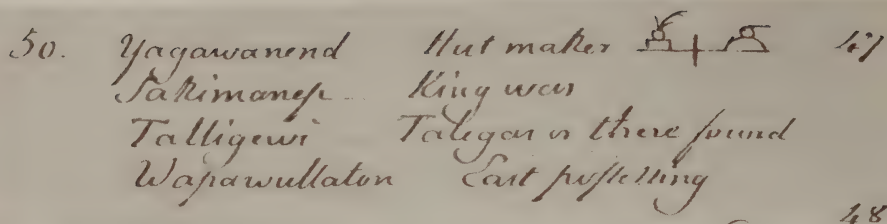 50. Yagawanend Hut maker 47
Sakimanep King was
Talligewi Talegas or there found
Wapawullaton East possessing
48